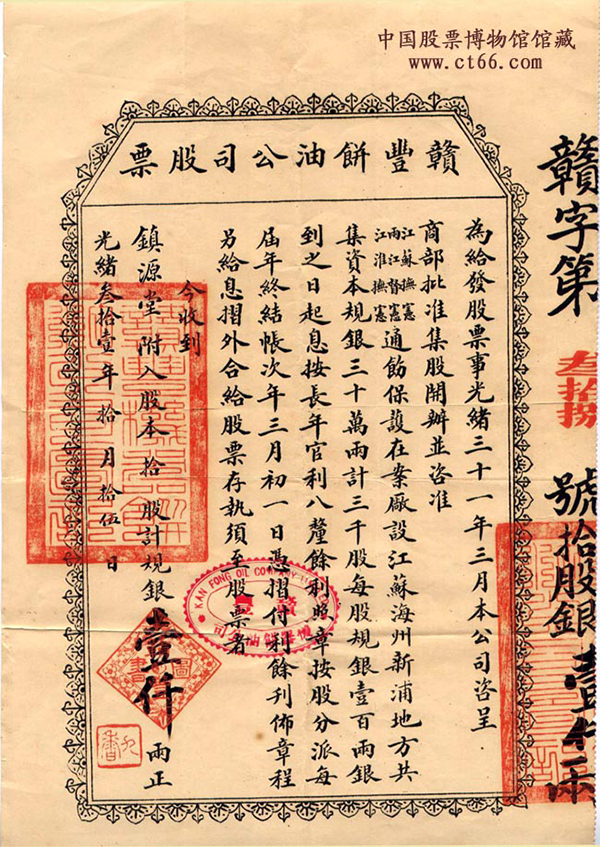 中国股票博物馆馆藏
www.ct66.com
贛豐餅油公司股票
為給發股票事光緒三十一年三月本公司咨呈
商部批准集股開辦並咨准
江蘇撫憲
兩江督憲
江淮撫憲
通飭保護在案廠設江蘇海州新浦地方共
集資本規銀三十萬兩計三千股每股規銀壹百兩銀
到之日起息按長年官利八釐餘利照章按股分派每
屆年終結帳次年三月初一日憑摺付利餘利佈章程
另給息摺外合給股票存執須至股票者
今收到
鎮源堂附入股本拾股計規銀壹仟兩正
光緒叁拾壹年拾月拾伍日
贛字第叁拾捌號拾股銀壹仟兩
KAN FONG OIL COMPANY
圖書